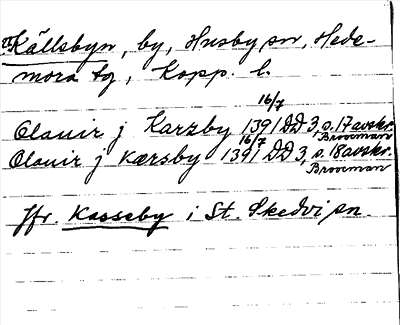 Källsbyn, by, Husby sn, Hede-
mora tg, Kopp. l.
Olauir j Karzby 16/7 1391 DD 3, s. 17 avskr. Brooman
Olauir j Kærsby 16/7 1391 DD 3, s. 18 avskr. Brooman
Jfr. Kasseby i St. Skedvi sn.